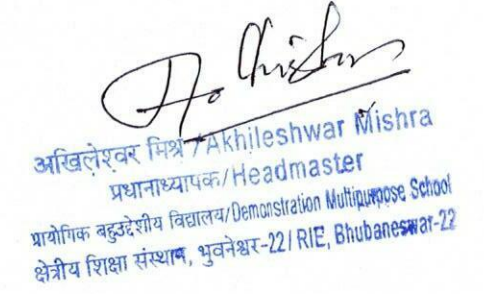 अखिलेश्वर मिश्र/Akhileshwar Mishra
प्रधानाध्यापक/Headmaster
प्रायोगिक बहुउद्देशीय विद्यालय/Demonstration Multipurpose School
क्षेत्रीय शिक्षा संस्थान, भुवनेश्वर-22/ RIE, Bhubaneswar-22